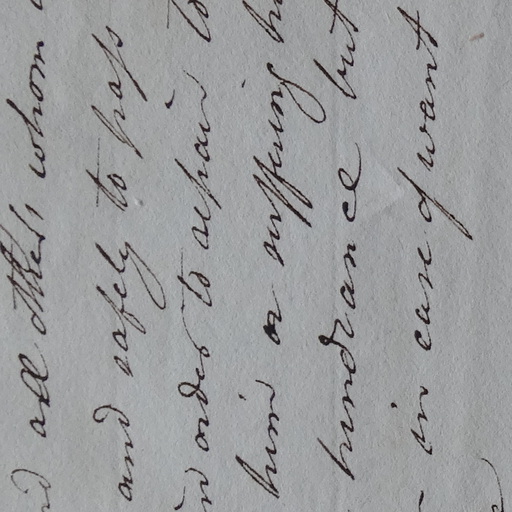 all others whom
and safely to pass
order to repair to
him or suffering
hindrance but
in case of want